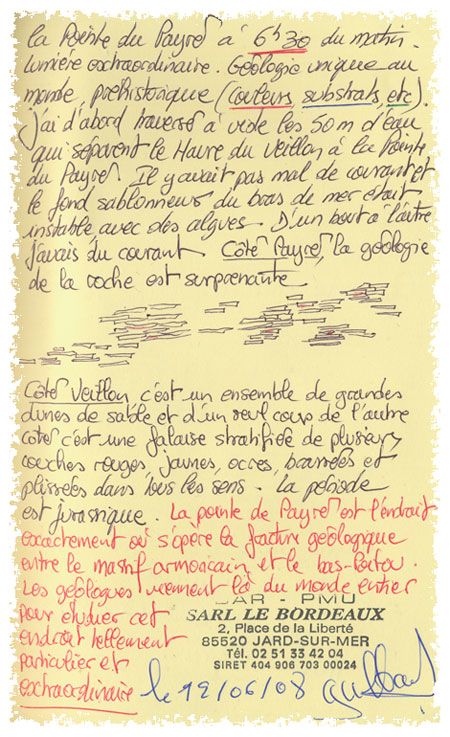 la Pointe du Payré à 6h30 du matin.
lumière extraordinaire. Géologie unique au
monde, préhistorique (couleurs, substrats, etc).
j'ai d'abord traversé à vide les 50m d'eau
qui séparent le Havre du Veillon à la Pointe
du Payré. Il y avait pas mal de courant et
le fond sablonneux du bras de mer était
instable avec des algues. D'un bout à l'autre
j'avais du courant. Côté Payré, la géologie
de la roche est surprenante
Côté Veillon c'est un ensemble de grandes
dunes de sable et d'un seul coup de l'autre
côté c'est une falaise stratifiée de plusieurs
couches rouges, jaunes, ocres, brassées et
plissées dans tous les sens. La période
est jurassique. La pointe de Payré est l'endroit
exactement où s'opère la facture géologique
entre le massif armoricain et le bas-Poitou.
Les géologues viennent là du monde entier
pour étudier cet
endroit tellement
particulier et
extraordinaire
BAR - PMU
SARL LE BORDEAUX
2, Place de la Liberté
85520 JARD-SUR-MER
Tél. 02 51 33 42 04
SIRET 404 906 703 00024
le 19/06/08